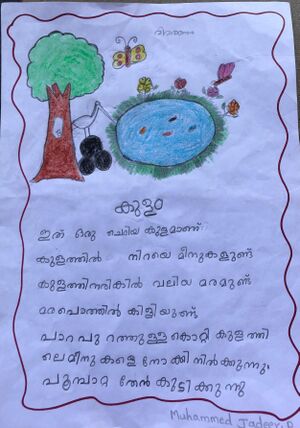 വിവരണം
കുളം
ഇത് ഒരു ചെറിയ കുളമാണ്
കുളത്തിൽ നിറയെ മീനുകളുണ്ട്
കുളത്തിനരികിൽ വലിയ മരമുണ്ട്
മരപൊത്തിൽ കിളിയുണ്ട്
പാറ പു റത്തുള്ള കൊറ്റി കുളത്തി
ലെ മീനു കളെ നോക്കി നിൽക്കുന്നു.
പൂമ്പാറ്റ തേൻ കുടിക്കു ന്നു
Muhammed Jadeer. P